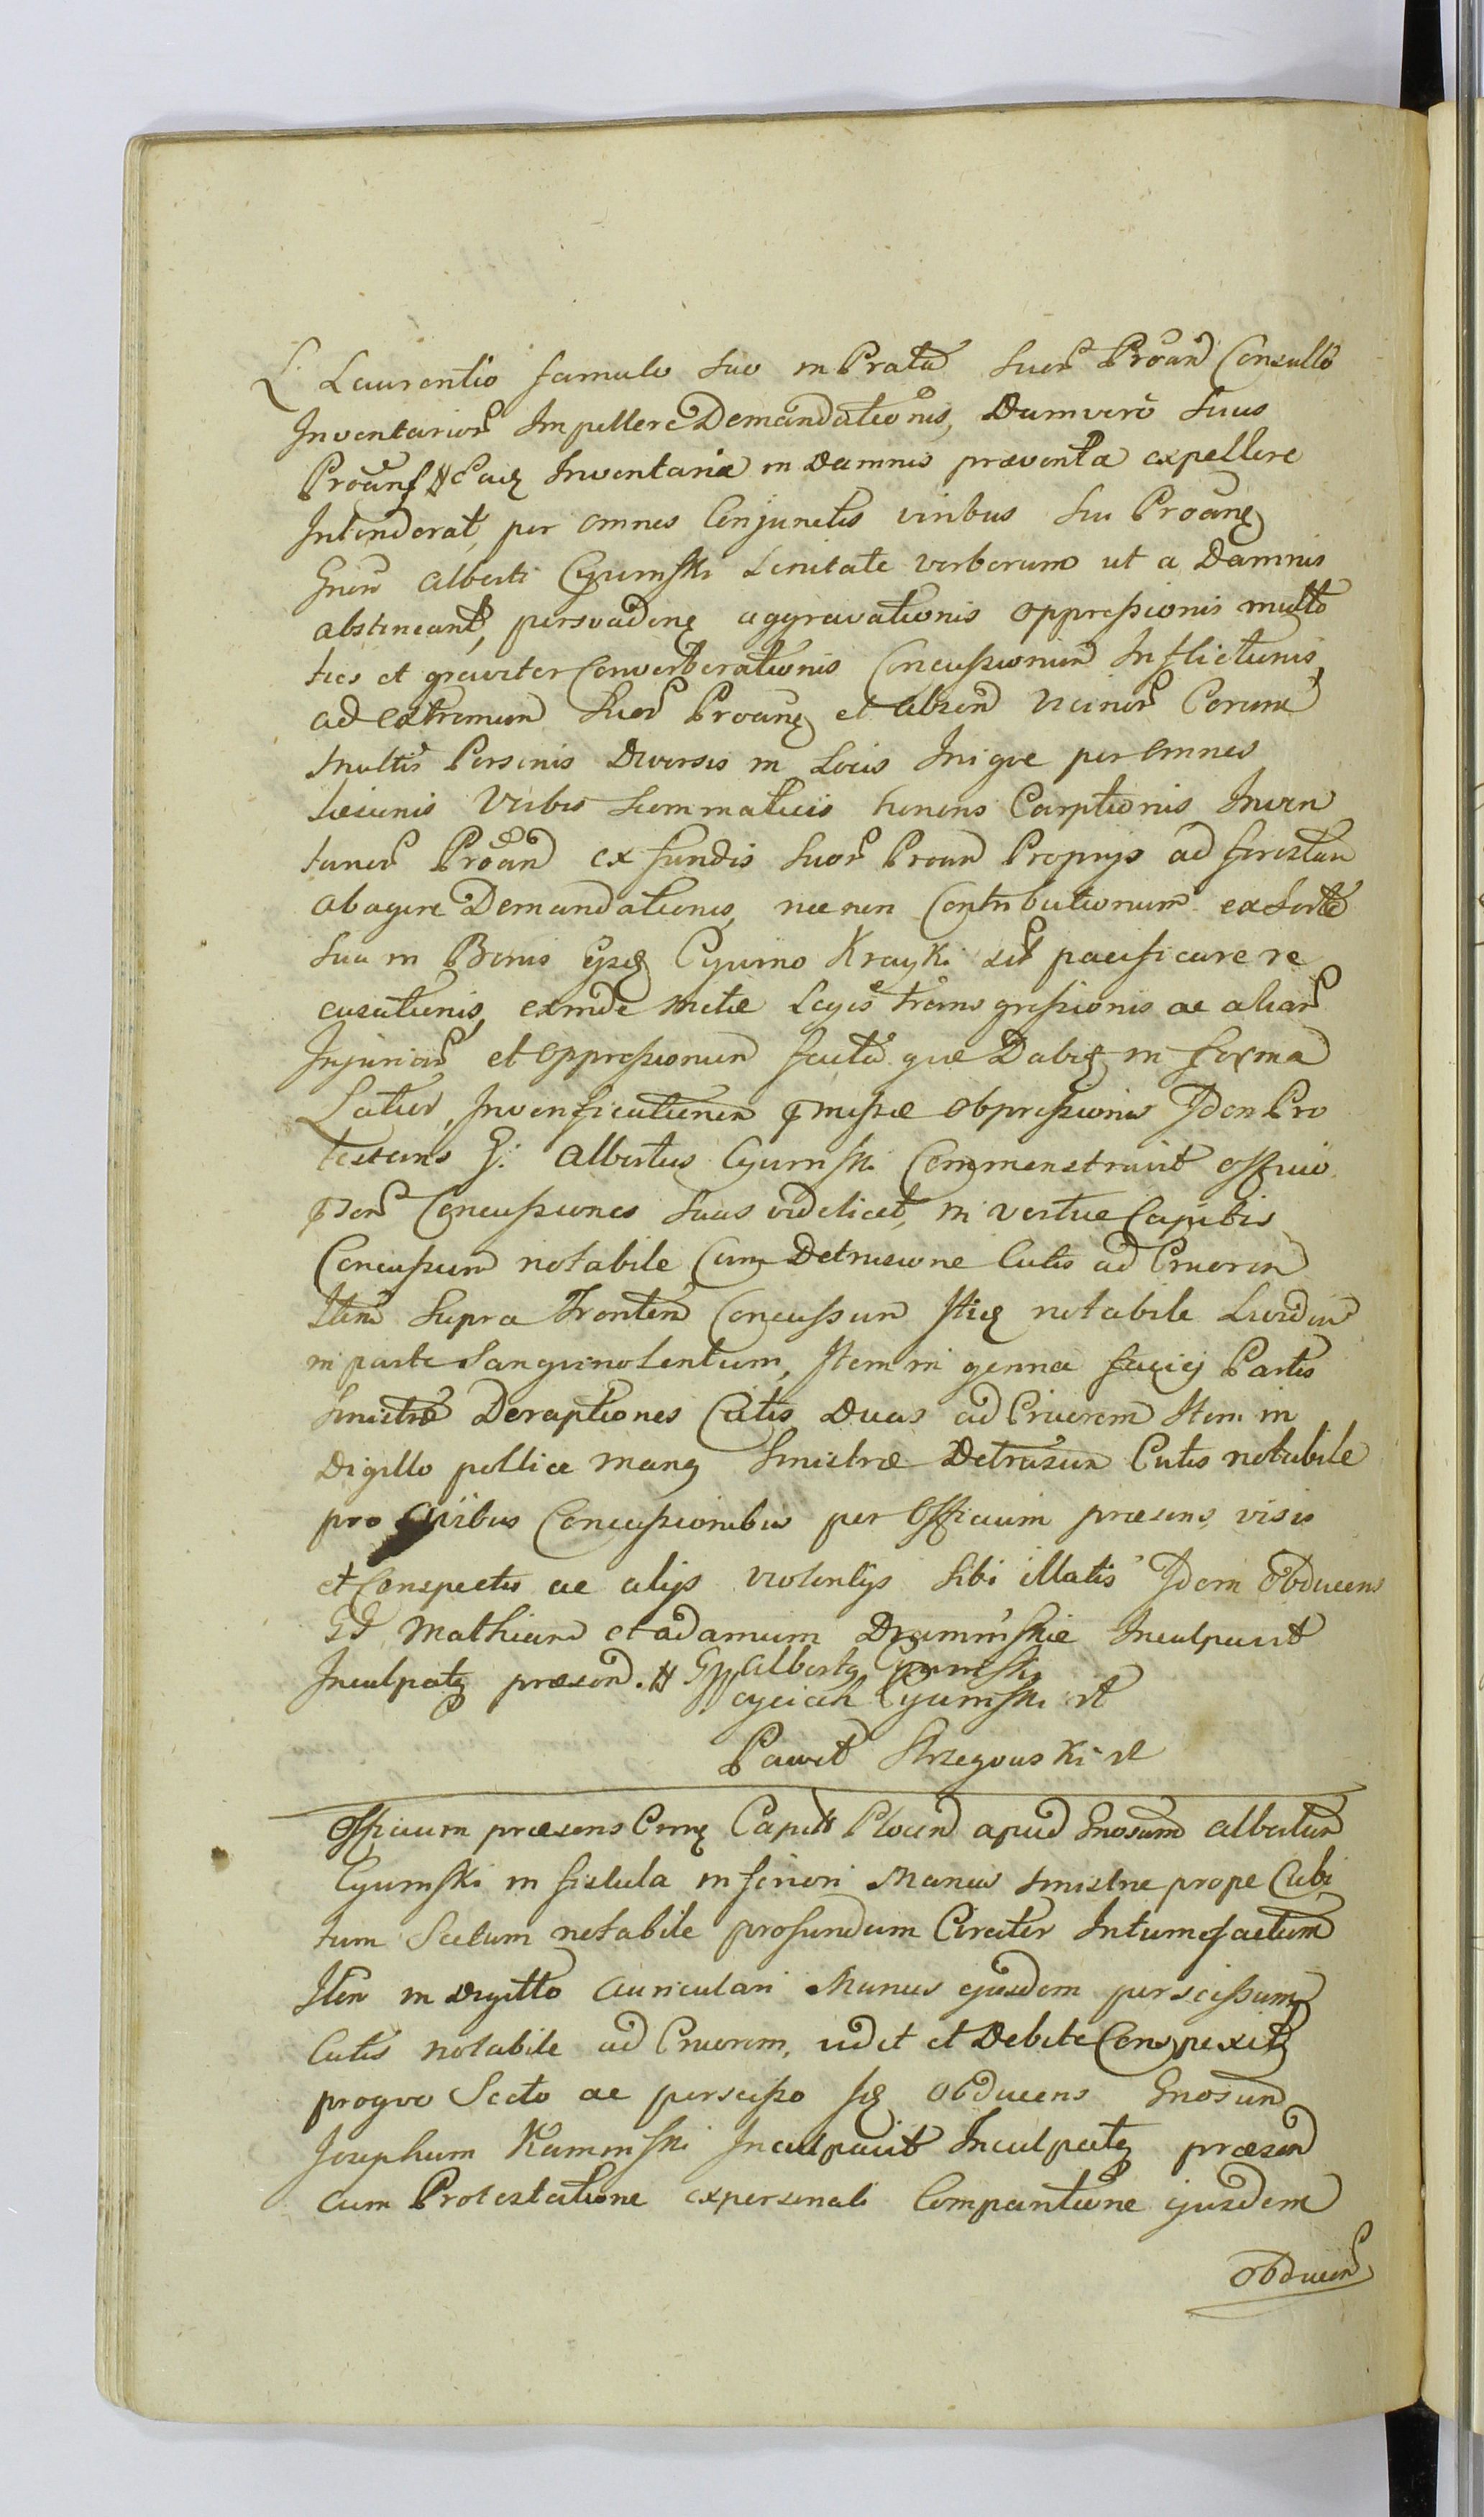 L. Laurentio famulo suo in Prata suor Proan Consulto
Inventarior Impellere Demandationis, Dumvero Suus
Proang Inventaria in Damnis præventa expellere
Intenderat, per omnes Conjunctis viribus sui Proang
Gnosi Alberti Cyumski Lenitate verborum ut a Damnis
abstineant, persvadeng aggravationis oppressionis multo
ties et graviter Converberationis Concussionum Inflictionis,
ad extremum Suor Proang et absen vicinor Coram
multis Personis Diversis in Locis Inigve per omnes
Læsionis Verbis Scommaticis honoris Carptionis Inven
tarior Proan ex fundis Suor Proan Proprijs ad forestam
abagere Demandationis, necnon Contributionum ex Sorte
sua in Bonis Cyumo Krayki pacificare re
cusationis, exinde mictæ Legis transgressionis ac aliar
Injuriar et oppressionum facta que Dabit in forma
Latior, Inverificationem missæ obpressionis Idem Pro
testans G: Albertus Cyumski Commonstravit officio
Concussiones suas videlicet, in vertice Capitis
Concussum notabile Cum Detrusione Cutis ad Cruorem
Item Supra Frontem Concussum notabile Lividum
in parte Sangvinolentum, Item in genna faciej Partis
Sinistræ Deraptiones Cutis Duas ad Cruorem Item in
Digitto pollice mang Sinistræ Detrusum Cutis notabile
pro qvibus Concussionibus per Officium præsens visis
et Conspectis ac alijs violentijs sibi illatis Idem Obducens
GG Mathiam et adamum Drumińskie Inculpavit
Inculpatq præsen. Albertq Cyumski
Woyciech Cyumski
Paweł Strzegowski
Officium præsens Capit Plocen apud Gnosum albertum
Cyumski in fistula inferiori Manus sinistræ prope Cubi
tum Sectum notabile profundum Circiter Intumefactum
Item in Digitto auriculari Manus ejusdem perscissum
Cutis notabile ad Cruorem, vidit et Debite Conspexit
proqvo Secto ac perscisso obducens Gnosum
Josephum Kaminski Inculpavit Inculpatq præsen
cum Protestatione expersonali Comparitione ejusdem
Obducen